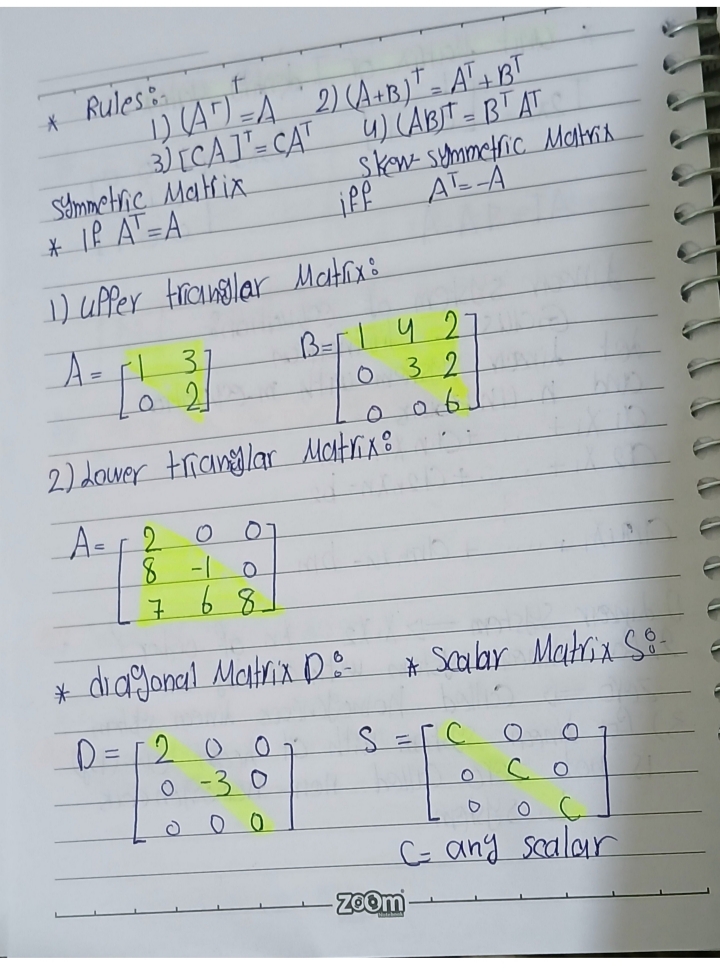 * Rules:-
1) (Aᵀ)ᵀ = A 2) (A+B)ᵀ = Aᵀ + Bᵀ
3) [CA]ᵀ = CAᵀ 4) (AB)ᵀ = Bᵀ Aᵀ
Symmetric Matrix skew-symmetric Matrix
* If Aᵀ = A iff Aᵀ = -A
1) Upper trianglar Matrix:
A = [1 3
0 2]
B = [1 4 2
0 3 2
0 0 6]
2) Lower trianglar Matrix:
A = [2 0 0
8 -1 0
7 6 8]
* diagonal Matrix D:- * Scalar Matrix S:-
D = [2 0 0
0 -3 0
0 0 0]
S = [C 0 0
0 C 0
0 0 C]
C = any scalar
ZOOM